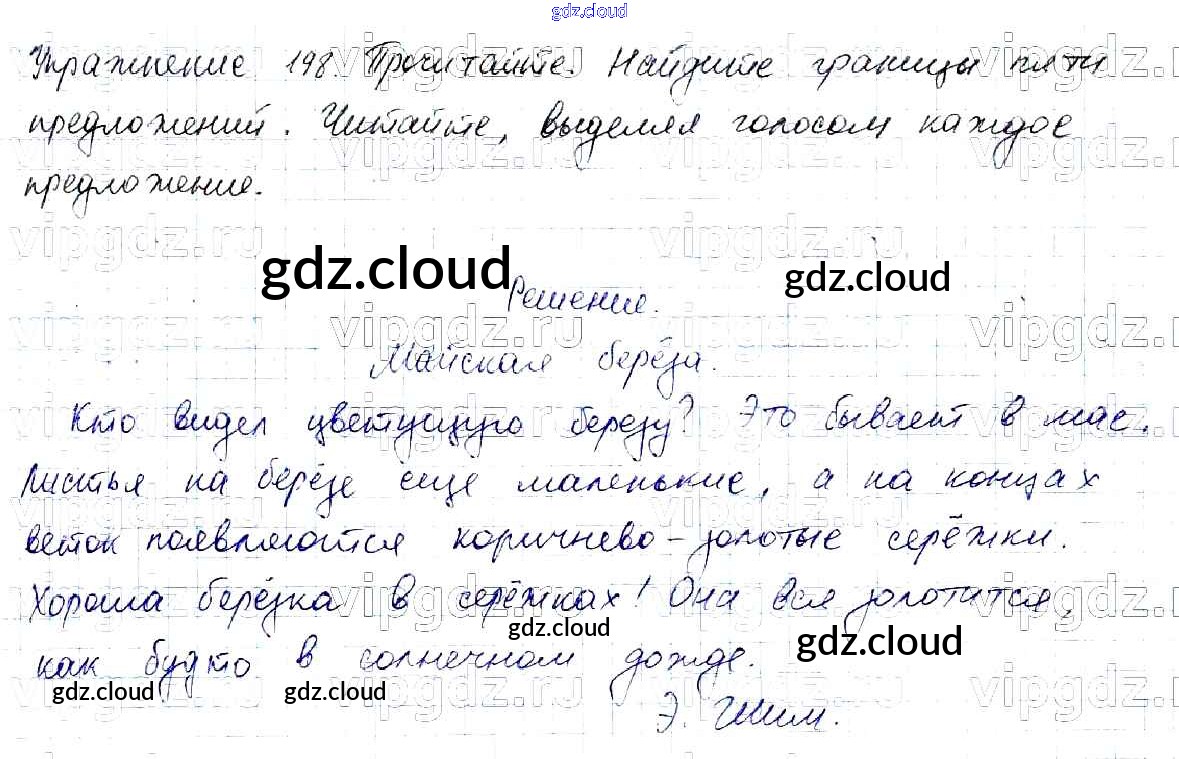 gdz.cloud
Упражнение 198. Прочитайте. Найдите границы пяти
предложений. Читайте, выделяя голосом каждое
предложение.
vipgdz.ru
gdz.cloud gdz.cloud
Решение.
Майская берёза.
Кто видел цветущую березу? Это бывает в мае.
Листья на берёзе еще маленькие, а на концах
веток появляются коричнево-золотые серёжки.
Хороша берёзка в серёжках! Она вся золотится,
gdz.cloud gdz.cloud
как будто в солнечном дожде.
gdz.cloud gdz.cloud
Э. Шим.